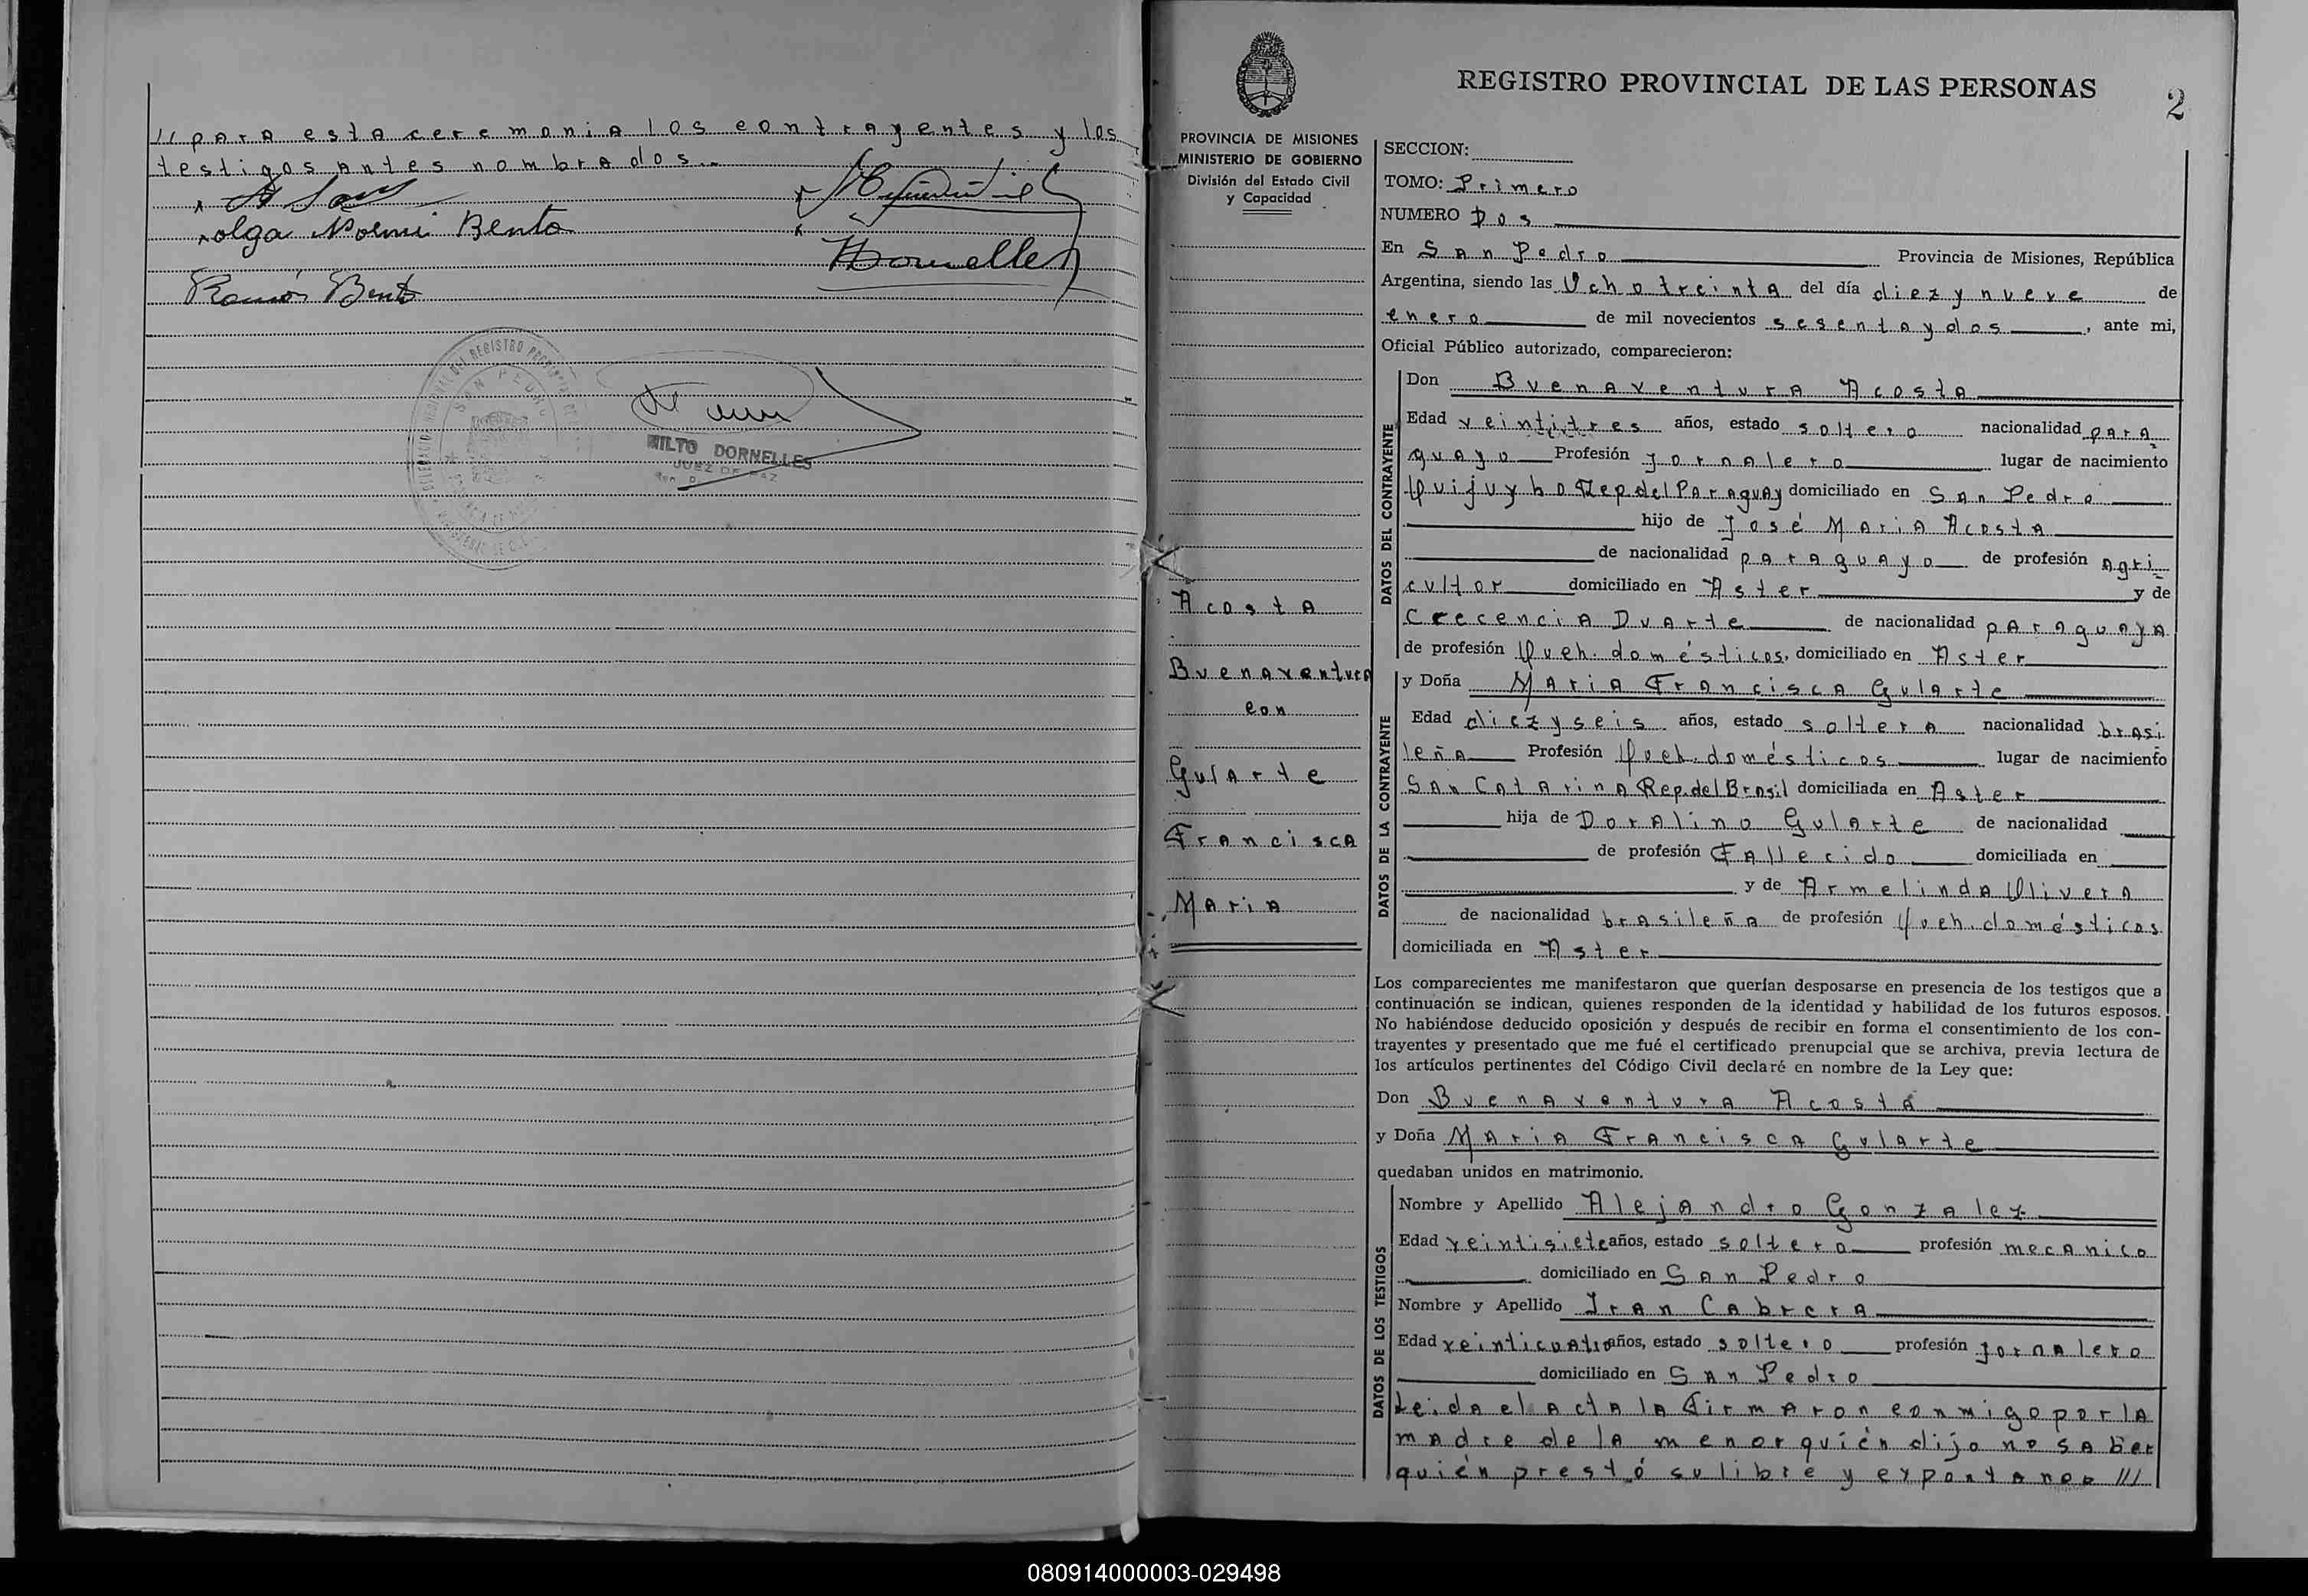 // para esta ceremonia los contrayentes y los
testigos antes nombrados.
Olga Noemi Bento
Dornelles
Ramón Bento
SAN PEDRO
MILTO DORNELLES
JUEZ DE PAZ
PROVINCIA DE MISIONES
MINISTERIO DE GOBIERNO
División del Estado Civil
y Capacidad
Acosta
Buenaventura
con
Gularte
Francisca
Maria
REGISTRO PROVINCIAL DE LAS PERSONAS
2
SECCION:
TOMO: Primero
NUMERO Dos
En San Pedro Provincia de Misiones, República
Argentina, siendo las Ocho treinta del día diez y nueve de
enero de mil novecientos sesenta y dos, ante mi,
Oficial Público autorizado, comparecieron:
DATOS DEL CONTRAYENTE
Don Buenaventura Acosta
Edad veintitres años, estado soltero nacionalidad para-
guayo Profesión jornalero lugar de nacimiento
Quijuyho Rep del Paraguay domiciliado en San Pedro
hijo de José Maria Acosta
de nacionalidad paraguayo de profesión agri-
cultor domiciliado en Aster y de
Crecencia Duarte de nacionalidad paraguaya
de profesión Queh. domésticos, domiciliado en Aster
DATOS DE LA CONTRAYENTE
y Doña Maria Francisca Gularte
Edad diez y seis años, estado soltera nacionalidad brasi-
leña Profesión Queh. domésticos lugar de nacimiento
San Catarina Rep. del Brasil domiciliada en Aster
hija de Doralino Gularte de nacionalidad
de profesión Fallecido domiciliada en
y de Armelinda Olivera
de nacionalidad brasileña de profesión Queh. domésticos
domiciliada en Aster
Los comparecientes me manifestaron que querían desposarse en presencia de los testigos que a
continuación se indican, quienes responden de la identidad y habilidad de los futuros esposos.
No habiéndose deducido oposición y después de recibir en forma el consentimiento de los con-
trayentes y presentado que me fué el certificado prenupcial que se archiva, previa lectura de
los artículos pertinentes del Código Civil declaré en nombre de la Ley que:
Don Buenaventura Acosta
y Doña Maria Francisca Gularte
quedaban unidos en matrimonio.
DATOS DE LOS TESTIGOS
Nombre y Apellido Alejandro Gonzalez
Edad veintisiete años, estado soltero profesión mecanico
domiciliado en San Pedro
Nombre y Apellido Iran Cabrera
Edad veinticuatro años, estado soltero profesión jornalero
domiciliado en San Pedro
Leida el acta la firmaron conmigo por la
madre de la menor quién dijo no saber
quién prestó su libre y expontaneo ///
080914000003-029498